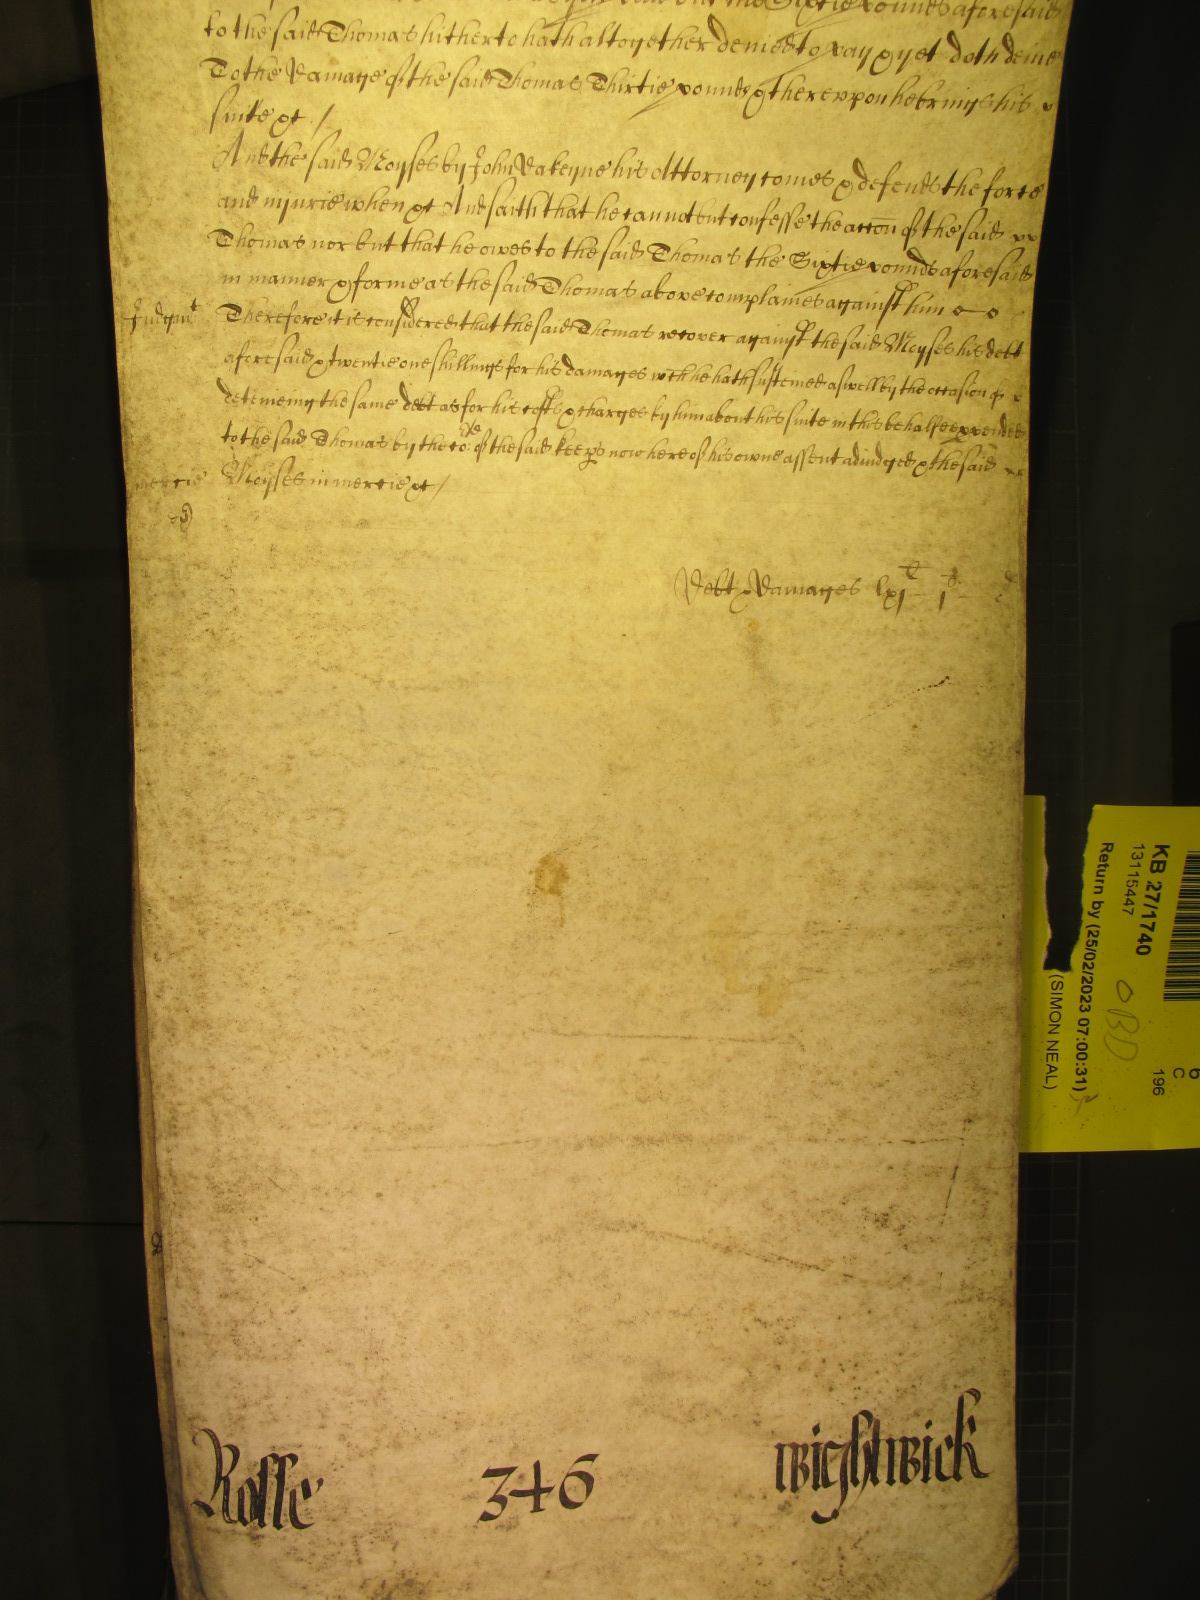 the Sixtie pounds aforesaid
to the said Thomas hitherto hath altogether denied to pay & yet doth denie
To the Damage of the said Thomas Thirtie pounds & thereupon he brings his
suite &c /
And the said Moyses by John Dakeyne his Attorney comes & defends the force
and injurie when &c And saith that he can not but confesse the accōn of the said
Thomas nor but that he owes to the said Thomas the Sixtie pounds aforesaid
in manner & forme as the said Thomas above complaines against him
Judgmt Therefore it is considered that the said Thomas recover against the said Moyses his debt
aforesaid & twentie one shillings for his damages wch he hath susteined aswell by the occasion of
deteineing the same debt as for his costs & charges by him about his suite in this behalfe expended
to the said Thomas by the Co: of the said keeps now here of his owne assent adjudged & the said
mercie Moyses in mercie &c /
Debt & Damages lxj l j s
Rolle 346 Wightwick
KB 27/1740
13115447
Return by (25/02/2023 07:00:31)
(SIMON NEAL)
OBD
196
C
6